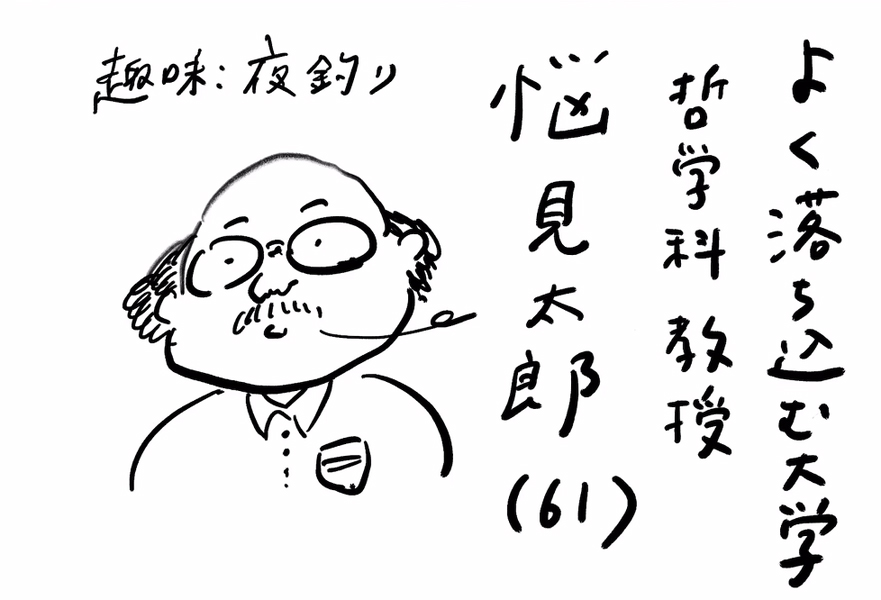 よく落ち込む大学
哲学科教授
悩見太郎
(61)
趣味:夜釣り